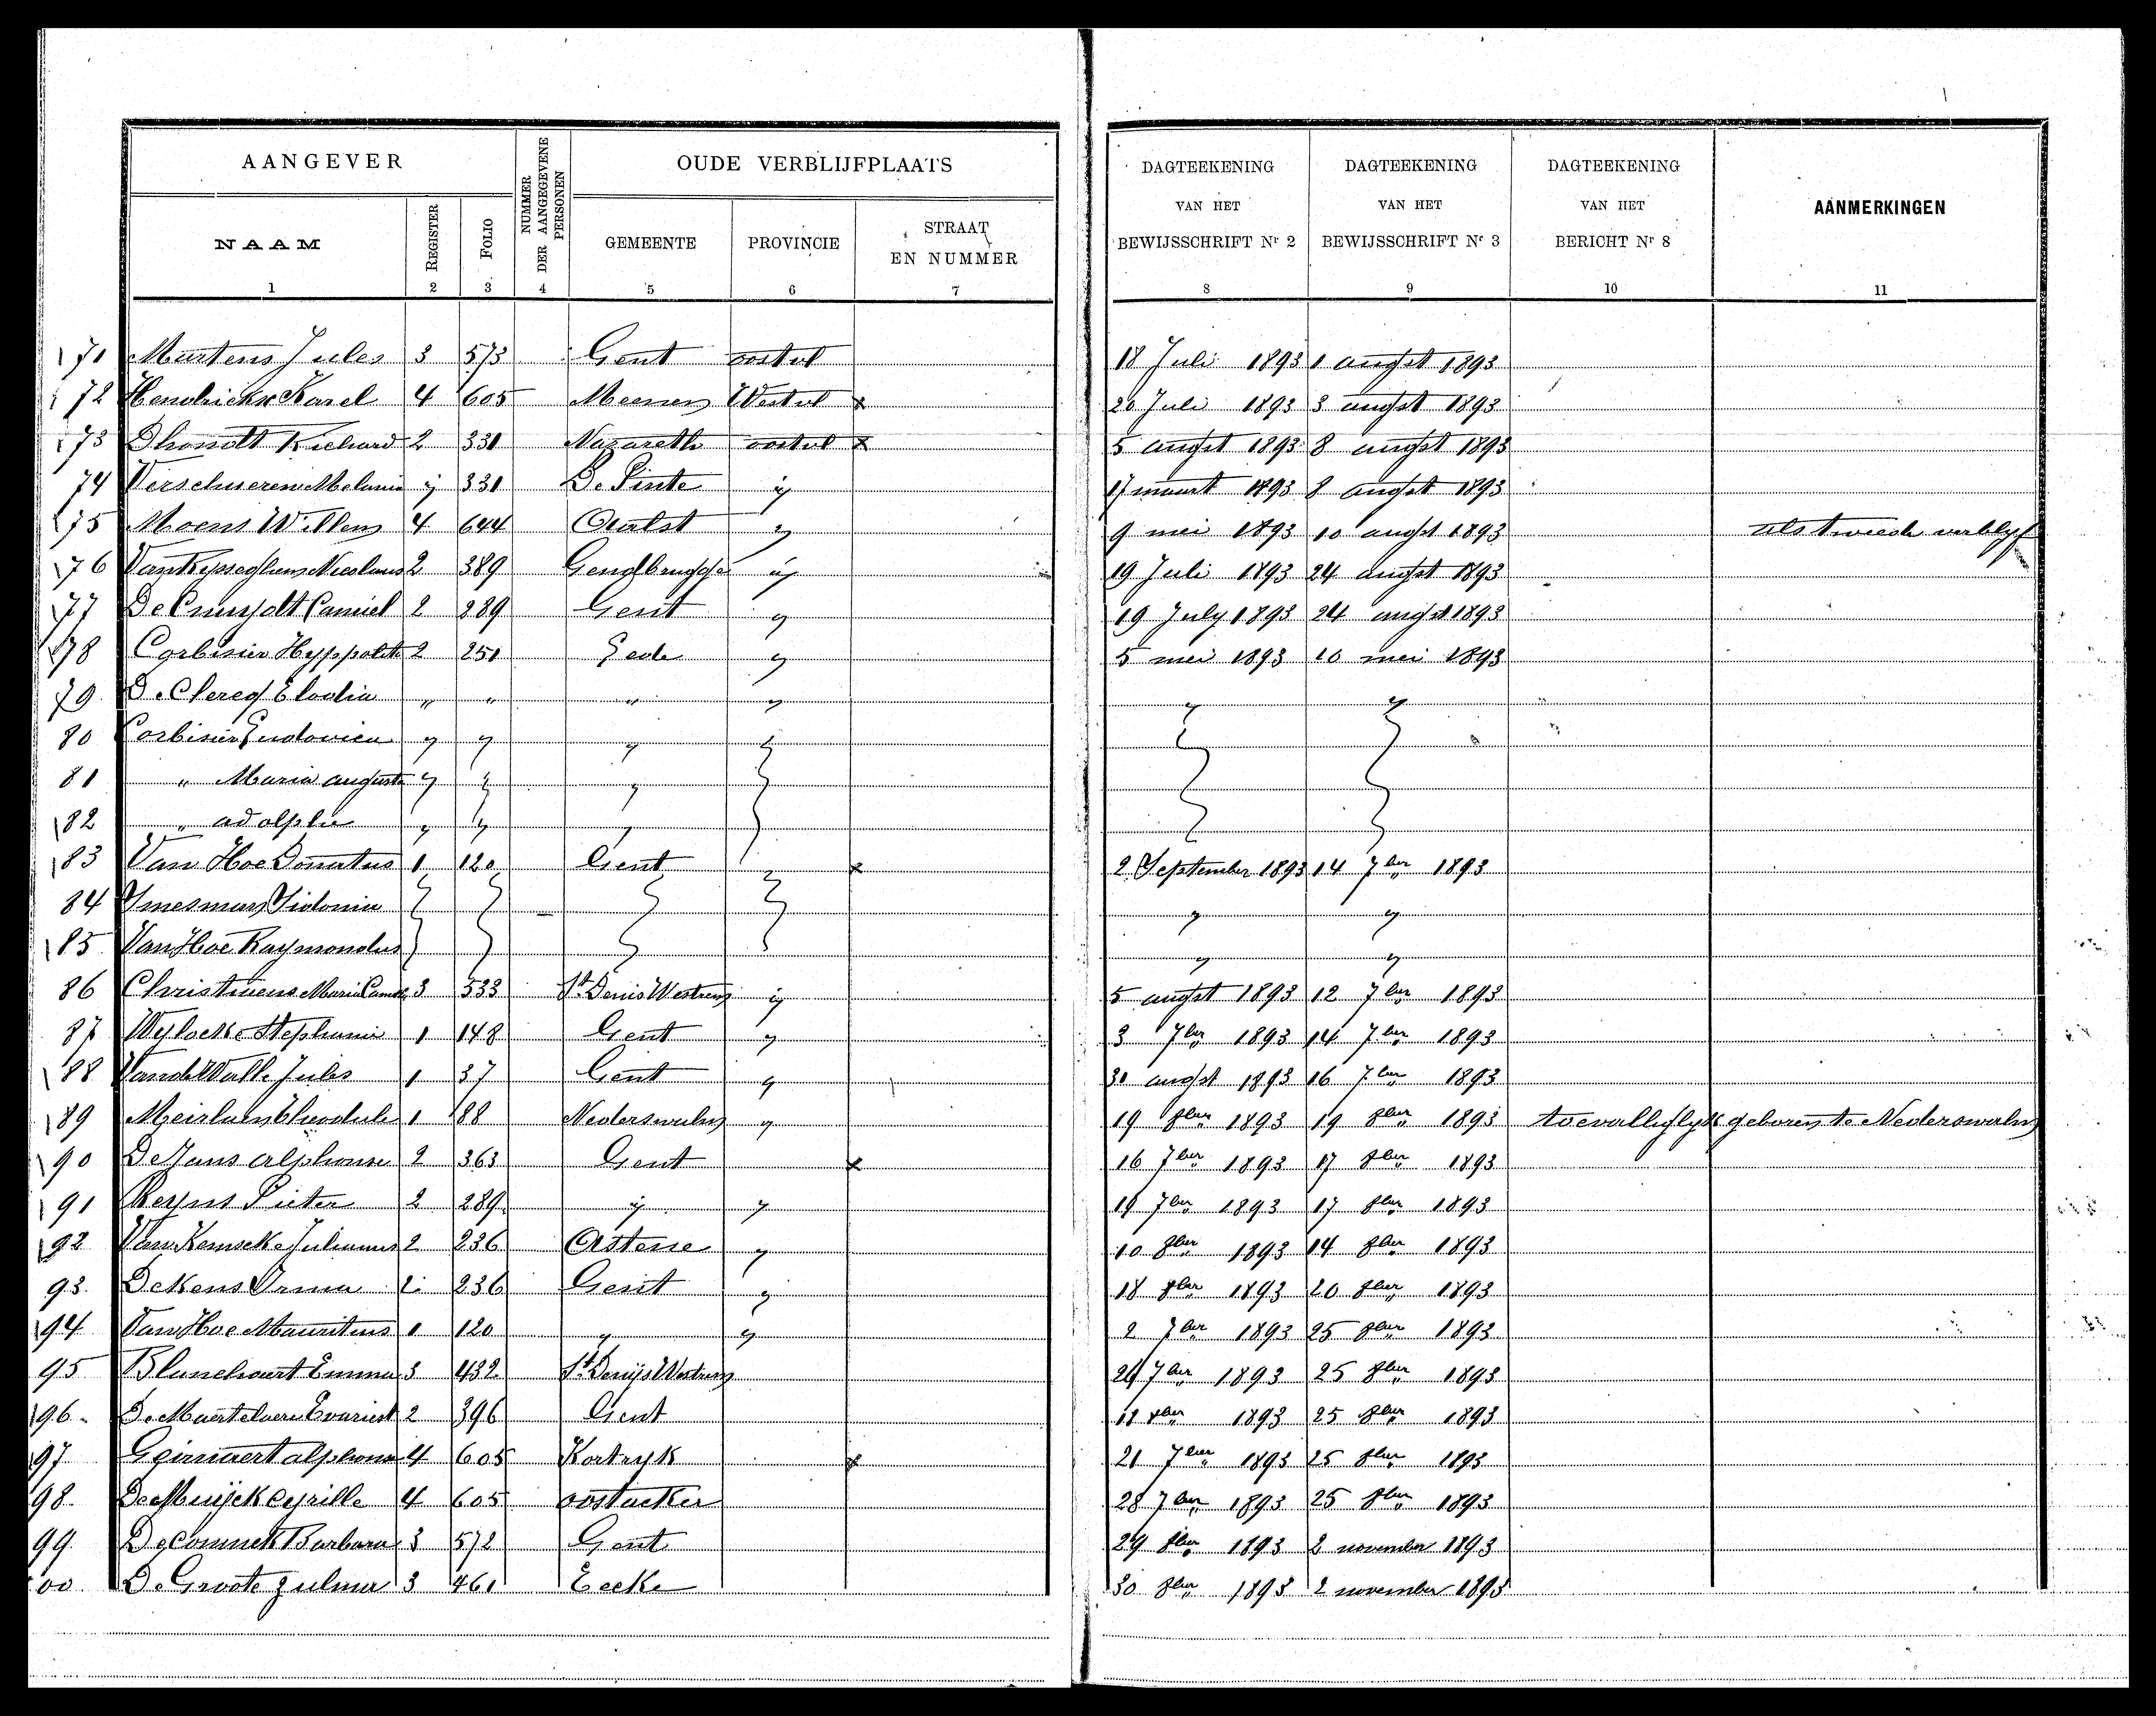 AANGEVER
NUMMER DER AANGEGEVENE PERSONEN
OUDE VERBLIJFPLAATS
DAGTEEKENING VAN HET BEWIJSSCHRIFT Nr 2
DAGTEEKENING VAN HET BEWIJSSCHRIFT Nr 3
DAGTEEKENING VAN HET BERICHT Nr 8
AANMERKINGEN
NAAM REGISTER FOLIO GEMEENTE PROVINCIE STRAAT EN NUMMER
1 2 3 4 5 6 7 8 9 10 11
171 Martens Jules 3 573 Gent oostvl 18 Juli 1893 1 augst 1893
172 Hendrickx Karel 4 605 Meenen Westvl x 20 Juli 1893 3 augst 1893
173 Dhondt Richard 2 331 Nazareth oostvl x 5 augst 1893 8 augst 1893
74 Verschueren Melanie ij 331 De Pinte ij 17 maart 1893 8 augst 1893
175 Moens Willem 4 644 Aalst ij 9 mei 1893 10 augst 1893 als tweede verblijf
176 2 389 ij 19 Juli 1893 24 augst 1893
177 Camiel 2 289 Gent ij 19 July 1893 24 augst 1893
178 Corbisier Hyppolite 2 251 ij 5 mei 1893 10 mei 1893
79 De Clercq Elodia " " " " " "
80 Corbisier Ludovica " " " "
81 " Maria auguste " " "
182 " adolphe " " "
183 Van Hoe Donatus 1 120 Gent " x 2 September 1893 14 7ber 1893
84 Sidonia " "
185 Van Hoe Raymondus " "
86 Christiaens Maria 3 533 St Denis Westrem ij 5 augst 1893 12 7ber 1893
87 Wylocke Stephanie 1 148 Gent ij 3 7ber 1893 14 7ber 1893
188 Vande Walle Jules 1 37 Gent ij 30 augst 1893 16 7ber 1893
189 1 88 Nederswalm ij 19 8ber 1893 19 8ber 1893 toevalliglyk geboren te Nederswalm
190 Alphonse 2 363 Gent x 16 7ber 1893 17 8ber 1893
191 Pieter 2 289 ij ij 19 7ber 1893 17 8ber 1893
192 Julianus 2 236 Astene ij 10 8ber 1893 14 8ber 1893
93. Dekens Irma 2 236 Gent ij 18 8ber 1893 20 8ber 1893
194 Van Hoe Mauritius 1 120 ij ij 2 7ber 1893 25 8ber 1893
95 Blanchaert Emma 3 432 St Denijs Westrem 29 7ber 1893 25 8ber 1893
196. De Martelaere Evarist 2 396 Gent 11 8ber 1893 25 8ber 1893
197 alphons 4 605 Kortryk x 21 7ber 1893 25 8ber 1893
98. Cyrille 4 605 oostacker 28 7ber 1893 25 8ber 1893
99. Deconinck Barbara 3 572 Gent 29 8ber 1893 2 november 1893
00 De Groote Zulma 3 461 Eecke 30 8ber 1893 2 november 1893